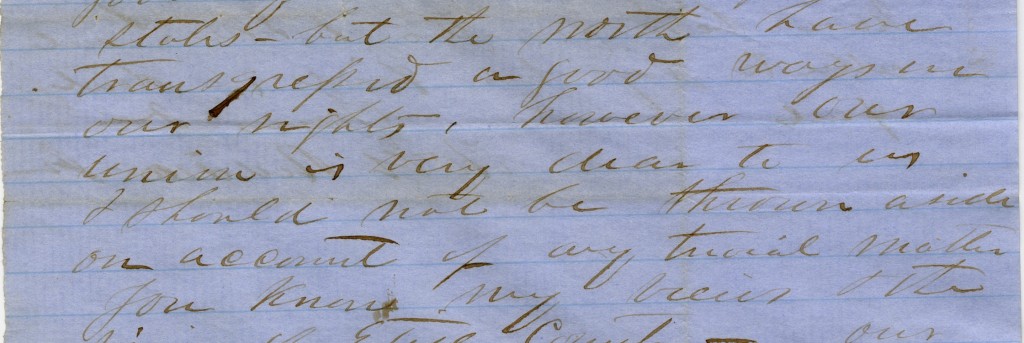 states - but the north have
transgressed a good ways on
our rights, however our
union is very dear to us
& should not be thrown aside
on account of any trivial matter
you know my views & the
of Estill County - our